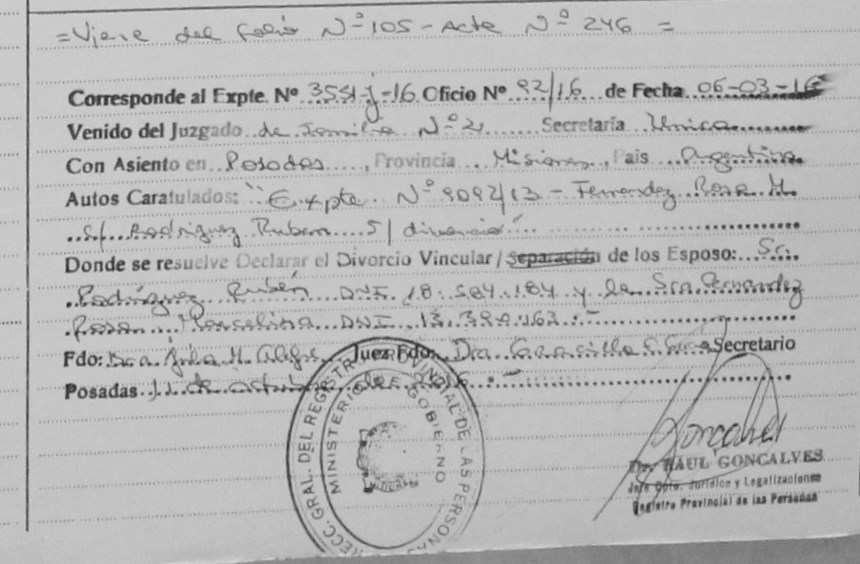 =Viene del folio Nº 105 - Acta Nº 246 =
Corresponde al Expte. Nº 3551-J-16 Oficio Nº 92/16 de Fecha 06-03-16
Venido del Juzgado de Familia Nº 2 Secretaría Unica
Con Asiento en Posadas, Provincia Misiones, Pais Argentina
Autos Caratulados: "Expte. Nº 9092/13 - Fernandez Rosa M.
c/ Rodriguez Ruben s/ divorcio"
Donde se resuelve Declarar el Divorcio Vincular / Separación de los Esposo: Sr.
Rodríguez Rubén DNI 18.584.184 y la Sra Fernandez
Rosa Marcelina DNI 13.390.163.-
Fdo: Dra Juez Fdo: Dra. Secretario
Posadas 11 de octubre de
RECC. GRAL. DEL REGISTRO PROVINCIAL DE LAS PERSONAS
MINISTERIO DE GOBIERNO
Goncalves
Dr. RAUL GONCALVES
Jefe Dpto. Jurídico y Legalizaciones
Registro Provincial de las Personas